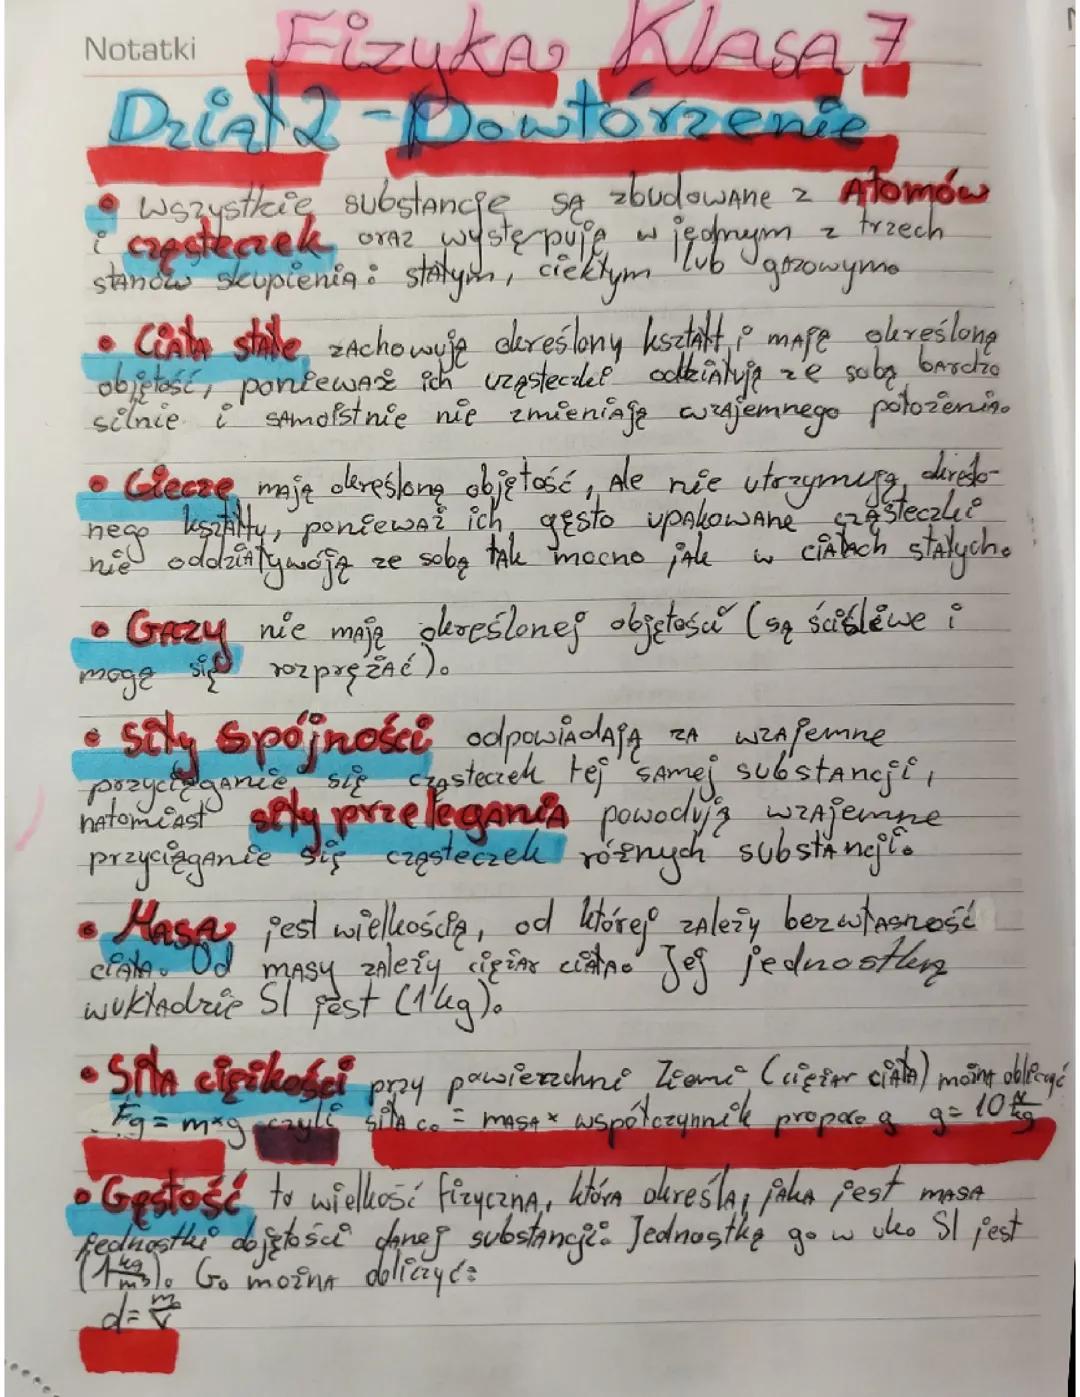 Notatki
Fizyka Klasa 7
Dział 2 - Powtórzenie
• Wszystkie substancje są zbudowane z Atomów
i cząsteczek oraz występują w jednym z trzech
stanów skupienia: stałym, ciekłym lub gazowym.
• Ciała stałe zachowują określony kształt i mają określoną
objętość, ponieważ ich cząsteczki oddziałują ze sobą bardzo
silnie i samoistnie nie zmieniają wzajemnego położenia.
• Ciecze mają określoną objętość, Ale nie utrzymują określo-
nego kształtu, ponieważ ich gęsto upakowane cząsteczki
nie oddziaływują ze sobą tak mocno jak w ciałach stałych.
• Gazy nie mają określonej objętości (są ściśliwe i
mogą się rozprężać).
• Siły spójności odpowiadają za wzajemne
przyciąganie się cząsteczek tej samej substancji,
natomiast siły przelegania powodują wzajemne
przyciąganie się cząsteczek różnych substancji.
• Masa jest wielkością, od której zależy bezwłasność
ciała. Od masy zależy ciężar ciała. Jej jednostką
w układzie SI jest (1 kg).
• Siła ciężkości przy powierzchni Ziemi (ciężar ciała) można obliczyć
Fg = m*g czyli siła c. = masa * współczynnik propor. g g = 10 N/kg
• Gęstość to wielkość fizyczna, która określa, jaka jest masa
jednostki objętości danej substancji. Jednostką gę w uk. SI jest
(1 kg/m³). G. można obliczyć:
d = m/V